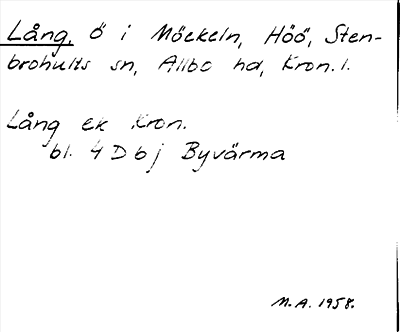 Lång, ö i Möckeln, Höö, Sten-
brohults sn, Allbo hd, Kron. l.
Lång ek Kron.
bl. 4 D b j Byvärma
M.A. 1958.